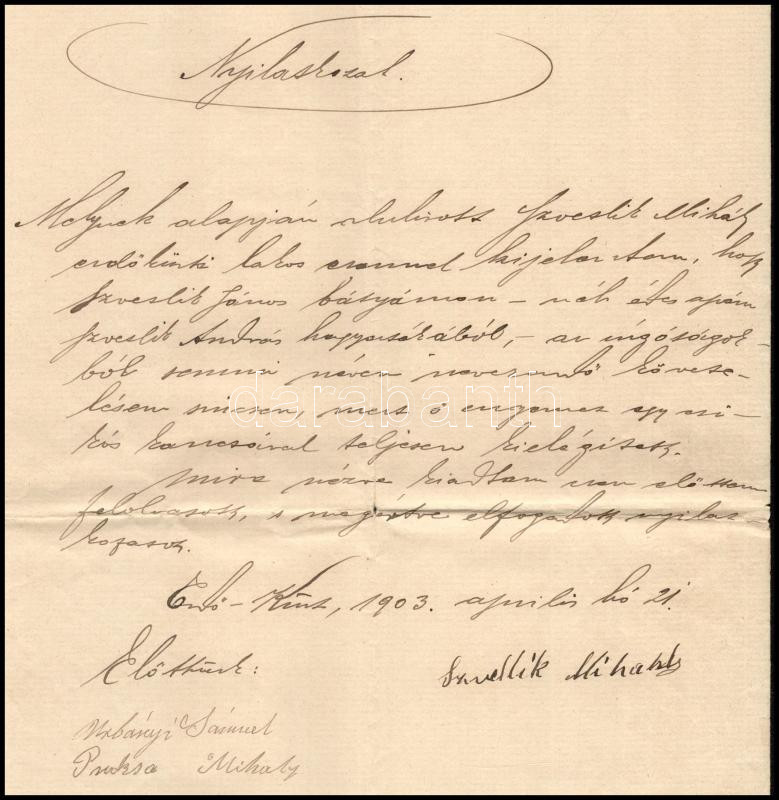 Nyilatkozat.
Melynek alapján alulirott Szveslik Mihály
erdőkürti lakos ezennel kijelentem, hogy
Szveslik János bátyámon – néh édes apám
Szveslik András hagyatékából, – az ingóságok-
ból semmi néven nevezendő követe-
lésem nincsen, mert ő engemet egy csi-
kós kancával teljesen kielégitett.
Mire nézve kiadtam ezen előttem
felolvasott, s megértve elfogadott nyilat-
kozatot.
Erdő-Kürt, 1903. április hó 21.
Előttünk:
Mihály
Urbányi Sámuel
Mihaly
darabanth